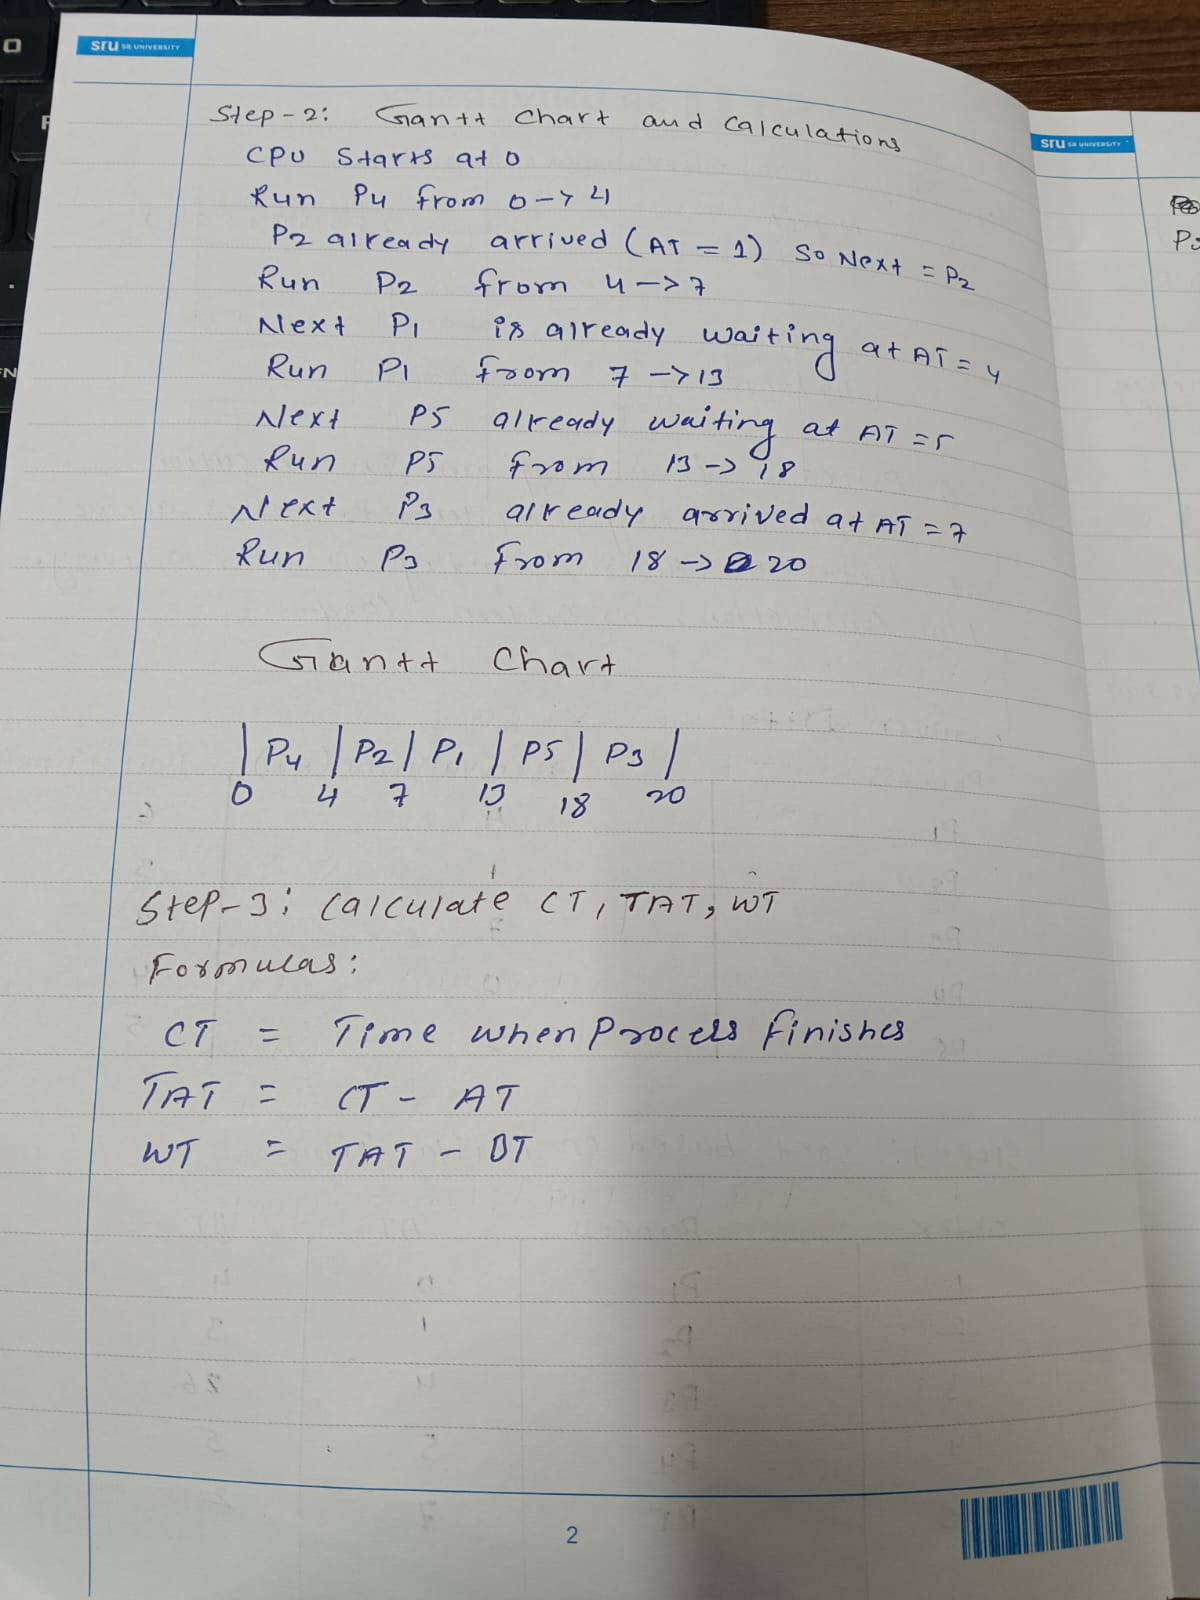 sru SR UNIVERSITY
Step-2: Gantt chart and calculations
CPU Starts at 0
Run P4 from 0->4
P2 already arrived (AT = 1) So Next = P2
Run P2 from 4->7
Next P1 is already waiting at AT = 4
Run P1 from 7->13
Next P5 already waiting at AT = 5
Run P5 from 13->18
Next P3 already arrived at AT = 7
Run P3 from 18-> 20
Gantt Chart
| P4 | P2 | P1 | P5 | P3 |
0 4 7 13 18 20
Step-3: Calculate CT, TAT, WT
Formulas:
CT = Time when Process finishes
TAT = CT - AT
WT = TAT - BT
2
sru SR UNIVERSITY